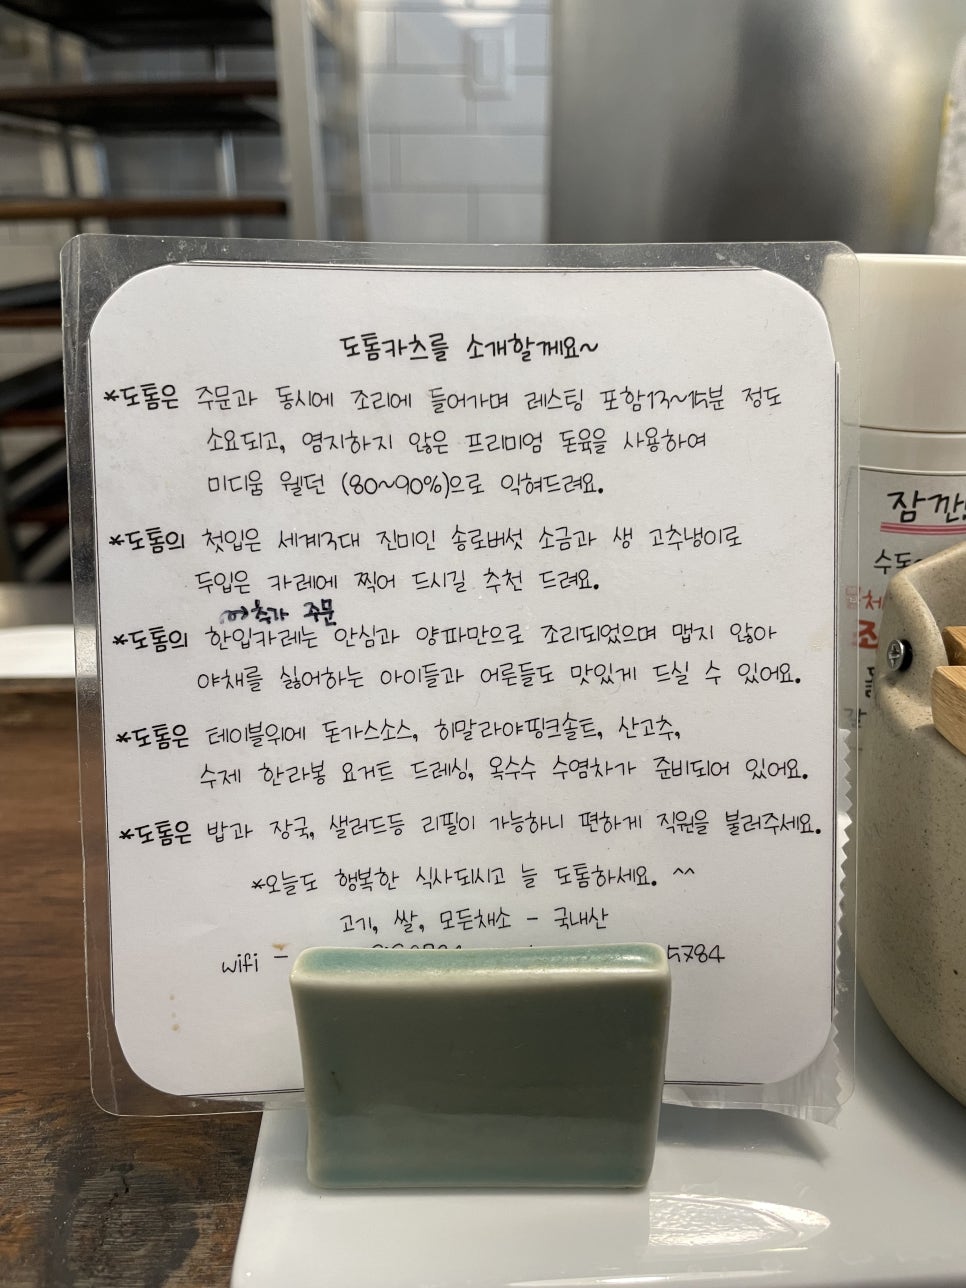 도톰카츠를 소개할께요~
*도톰은 주문과 동시에 조리에 들어가며 레스팅 포함13~15분 정도
소요되고, 염지하지 않은 프리미엄 돈육을 사용하여
미디움 웰던 (80~90%)으로 익혀드려요.
*도톰의 첫입은 세계3대 진미인 송로버섯 소금과 생 고추냉이로
두입은 카레에 찍어 드시길 추천 드려요.
추가 주문
*도톰의 한입카레는 안심과 양파만으로 조리되었으며 맵지 않아
야채를 싫어하는 아이들과 어른들도 맛있게 드실 수 있어요.
*도톰은 테이블위에 돈가스소스, 히말라야핑크솔트, 산고추,
수제 한라봉 요거트 드레싱, 옥수수 수염차가 준비되어 있어요.
*도톰은 밥과 장국, 샐러드등 리필이 가능하니 편하게 직원을 불러주세요.
*오늘도 행복한 식사되시고 늘 도톰하세요. ^^
고기, 쌀, 모든채소 - 국내산
wifi - 5784
잠깐!
수동